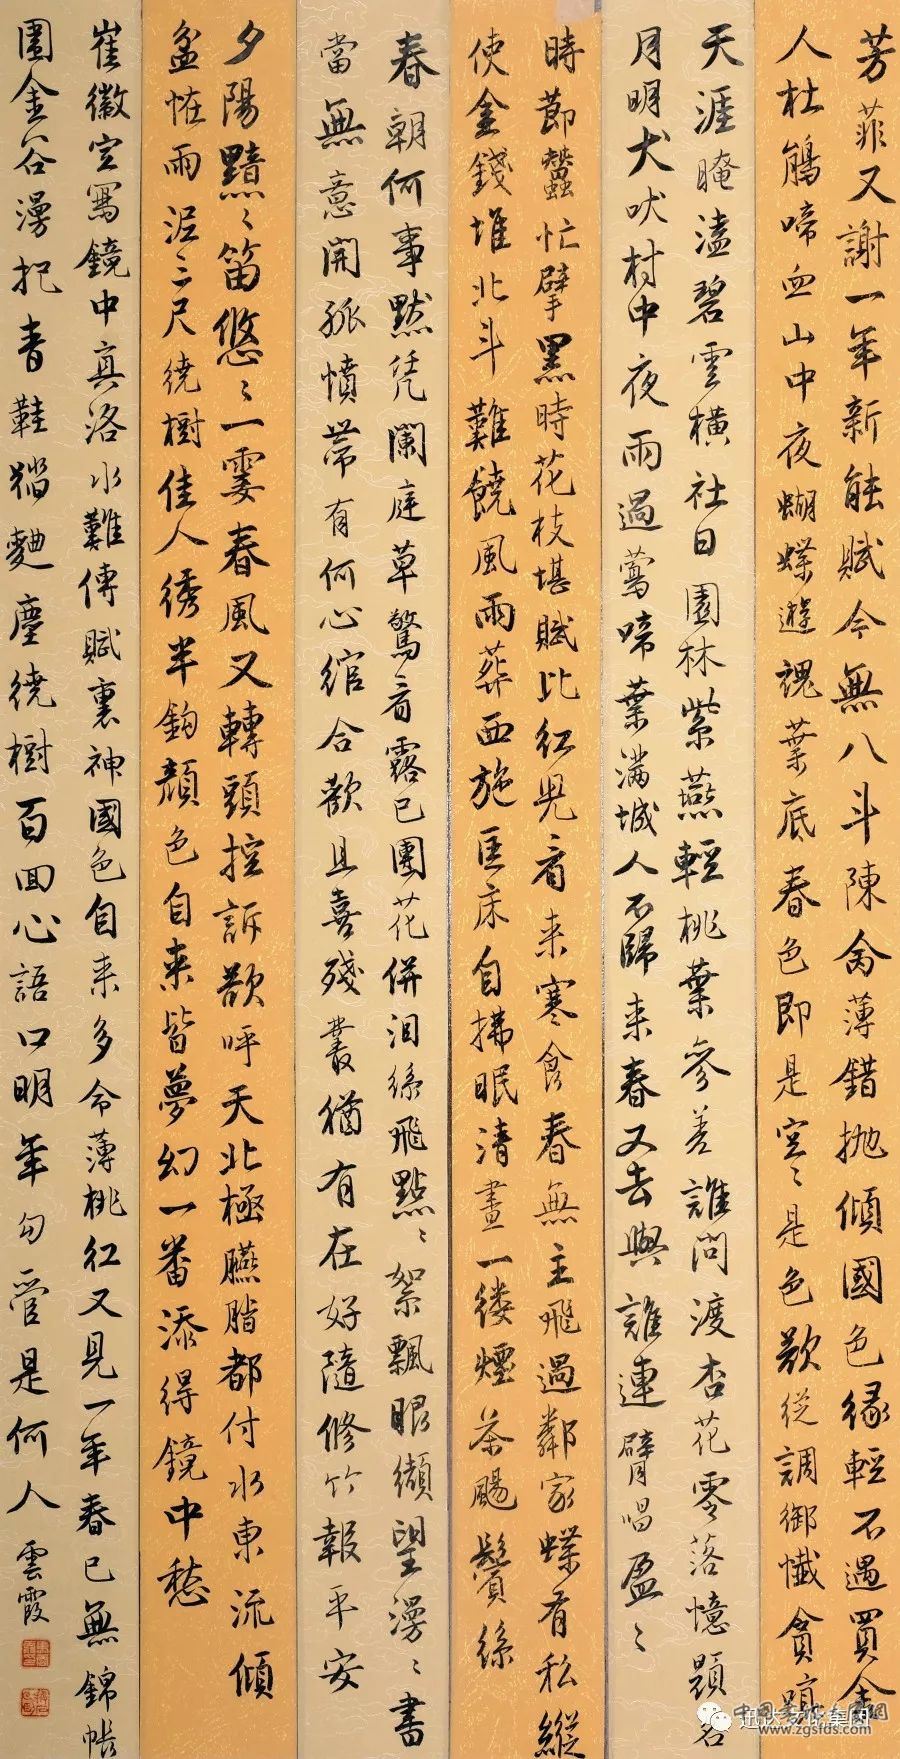 芳菲又謝一年新能賦今無八斗陳禽薄錯拋傾國色緣輕不遇買金
人杜鵑啼血山中夜蝴蝶遊魂葉底春色即是空〻是色歎從調御懺貪嗔
天涯晻溘碧雲橫社日園林紫燕輕桃葉參差誰問渡杏花零落憶題名
月明犬吠村中夜雨過鶯啼葉滿城人不歸來春又去與誰連臂唱盈〻
時節蠶忙擘黑時花枝堪賦比紅兒看來寒食春無主飛過鄰家蝶有私縱
使金錢堆北斗難饒風雨葬西施匡床自拂眠清晝一縷煙茶颺鬢絲
春朝何事默凭闌庭草驚看露已團花併泪絲飛點〻絮飄眼纈望漫〻書
當無意開孤憤帶有何心綰合歡且喜殘叢猶有在好隨修竹報平安
夕陽黯〻笛悠〻一霎春風又轉頭控訴欲呼天北極臙脂都付水東流傾
盆怪雨泥三尺繞樹佳人綉半鈎顏色自來皆夢幻一番添得鏡中愁
崔徽空寫鏡中真洛水難傳賦裏神國色自來多命薄桃紅又見一年春已無錦帳
圍金谷漫把青鞋踏麴塵繞樹百回心語口明年勾管是何人
雲霞
www.zgsfds.com